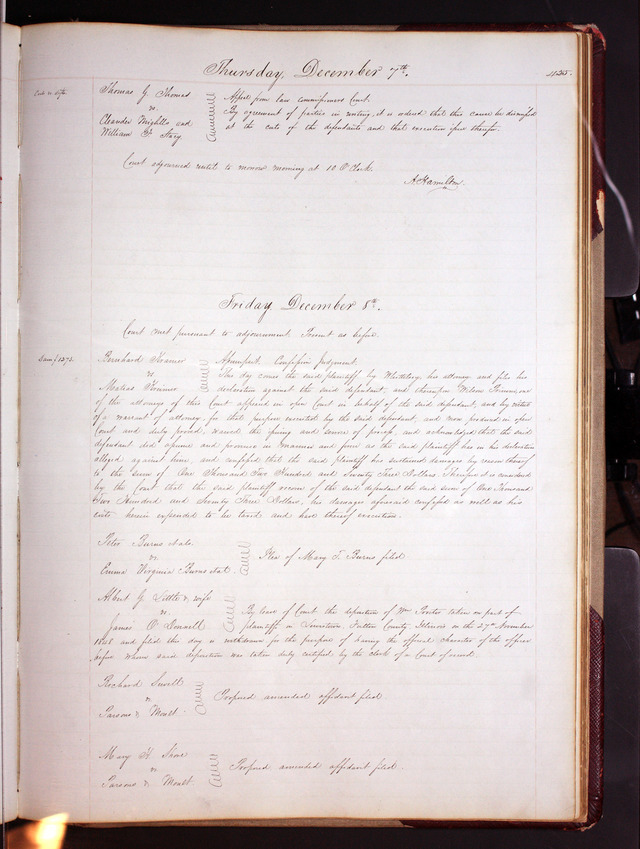 Thursday, December 7th.
Thomas G. Thomas
vs.
Cleander Mighills and
William F. Stacy
Appeal from law Commissioners Court.
By agreement of parties in writing, it is ordered that this cause be dismissed
at the costs of the defendants and that execution issue therefor.
Court adjourned until to morrow morning at 10 O'Clock.
A. Hamilton.
Friday, December 8th.
Court met pursuant to adjournment. Present as before.
Dam $1273.
Bernhard Kramer
vs
Matias Kramer
Assumpsit. Confession Judgment.
This day comes the said plaintiff, by his attorney and files his
declaration against the said defendant, and thereupon Wilson Primm, one
of the attorneys of this Court appeared in open Court in behalf of the said defendant, and by virtue
of a warrant of attorney, for that purpose executed by the said defendant, and now produced in open
Court and duly proved, waived the issuing and service of process, and acknowledged that the said
defendant did assume and promise in manner and form as the said plaintiff has in his declaration
alleged against him, and confessed that the said plaintiff has sustained damages by reason thereof
to the sum of One Thousand Two Hundred and Seventy Three Dollars. Therefore it is considered
by the Court that the said plaintiff recover of the said defendant the said sum of One Thousand
Two Hundred and Seventy Three Dollars, his damages aforesaid confessed as well as his
costs herein expended to be taxed and have thereof execution.
Peter Burns et als.
vs
Emma Virginia Burns et al.
Plea of Mary T. Burns filed
Albert G. Little & wife
vs.
James O.
By leave of Court the deposition of Wm Porter taken on part of
plaintiffs in Lewistown, Fulton County, Illinois on the 27th November
1848 and filed this day is withdrawn for the purpose of having the official character of the officer
before whom said deposition was taken duly certified by the clerk of a Court of record.
Richard Sewell
vs
Parsons & Moult.
Proposed amended affidavit filed.
Mary H. Shore
vs
Parsons & Moult.
Proposed amended affidavit filed.